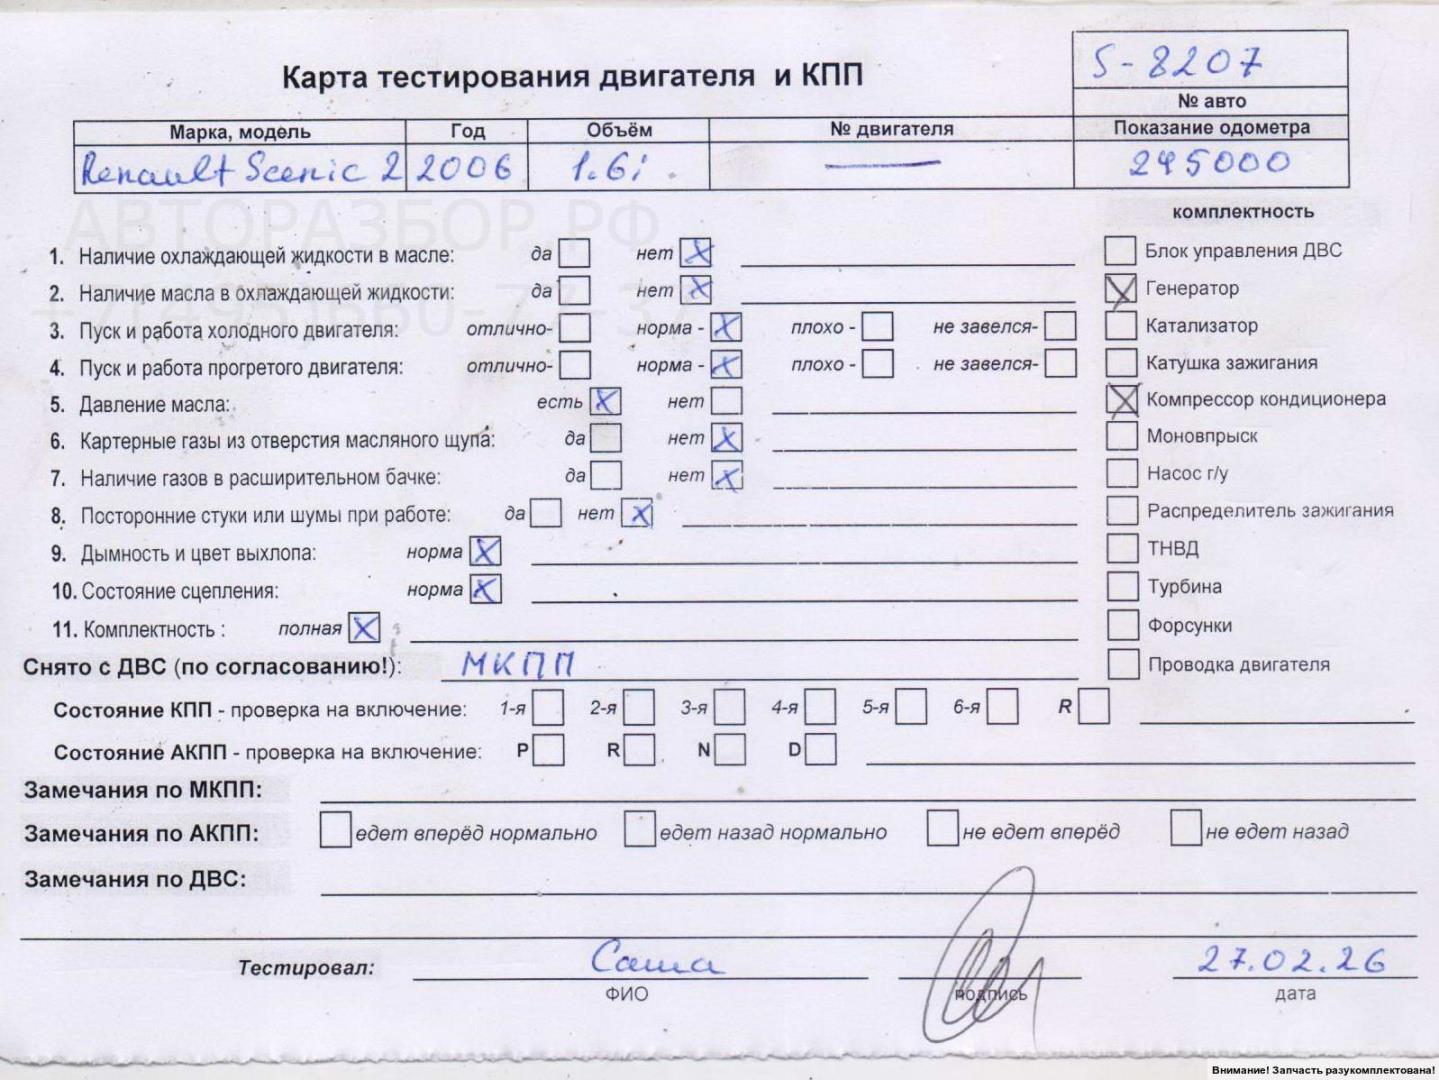 S-8207
Карта тестирования двигателя и КПП
№ авто
Марка, модель Год Объём № двигателя Показание одометра
Renault Scenic 2 2006 1.6i — 245000
АВТОРАЗБОР.РФ
комплектность
1. Наличие охлаждающей жидкости в масле: да нет X Блок управления ДВС
2. Наличие масла в охлаждающей жидкости: да нет X X Генератор
3. Пуск и работа холодного двигателя: отлично- норма - X плохо - не завелся- Катализатор
4. Пуск и работа прогретого двигателя: отлично- норма - X плохо - не завелся- Катушка зажигания
5. Давление масла: есть X нет X Компрессор кондиционера
6. Картерные газы из отверстия масляного щупа: да нет X Моновпрыск
7. Наличие газов в расширительном бачке: да нет X Насос г/у
8. Посторонние стуки или шумы при работе: да нет X Распределитель зажигания
9. Дымность и цвет выхлопа: норма X ТНВД
10. Состояние сцепления: норма X Турбина
11. Комплектность : полная X Форсунки
Снято с ДВС (по согласованию!): МКПП Проводка двигателя
Состояние КПП - проверка на включение: 1-я 2-я 3-я 4-я 5-я 6-я R
Состояние АКПП - проверка на включение: P R N D
Замечания по МКПП:
Замечания по АКПП: едет вперёд нормально едет назад нормально не едет вперёд не едет назад
Замечания по ДВС:
Тестировал: Саша 27.02.26
ФИО подпись дата
Внимание! Запчасть разукомплектована!